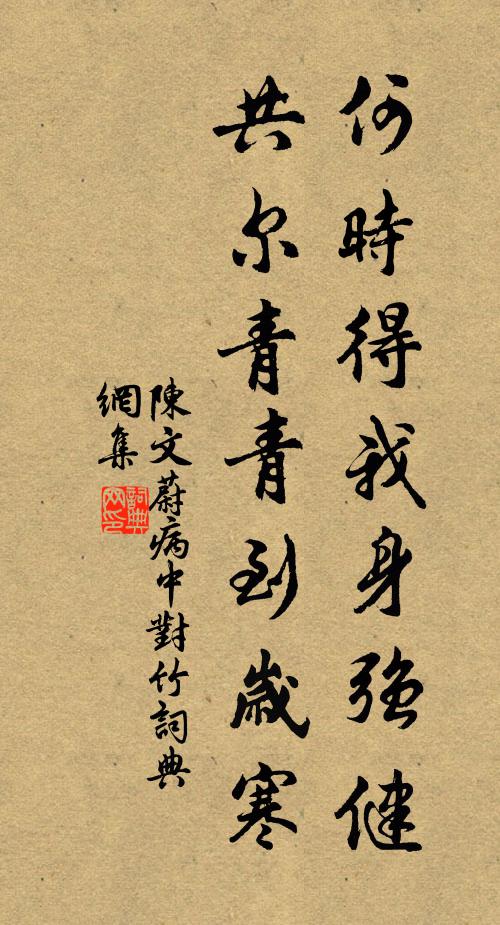 何時得我身強健
共尔青青到歲寒
陳文蔚病中對竹詞典
網集
詞典
网印